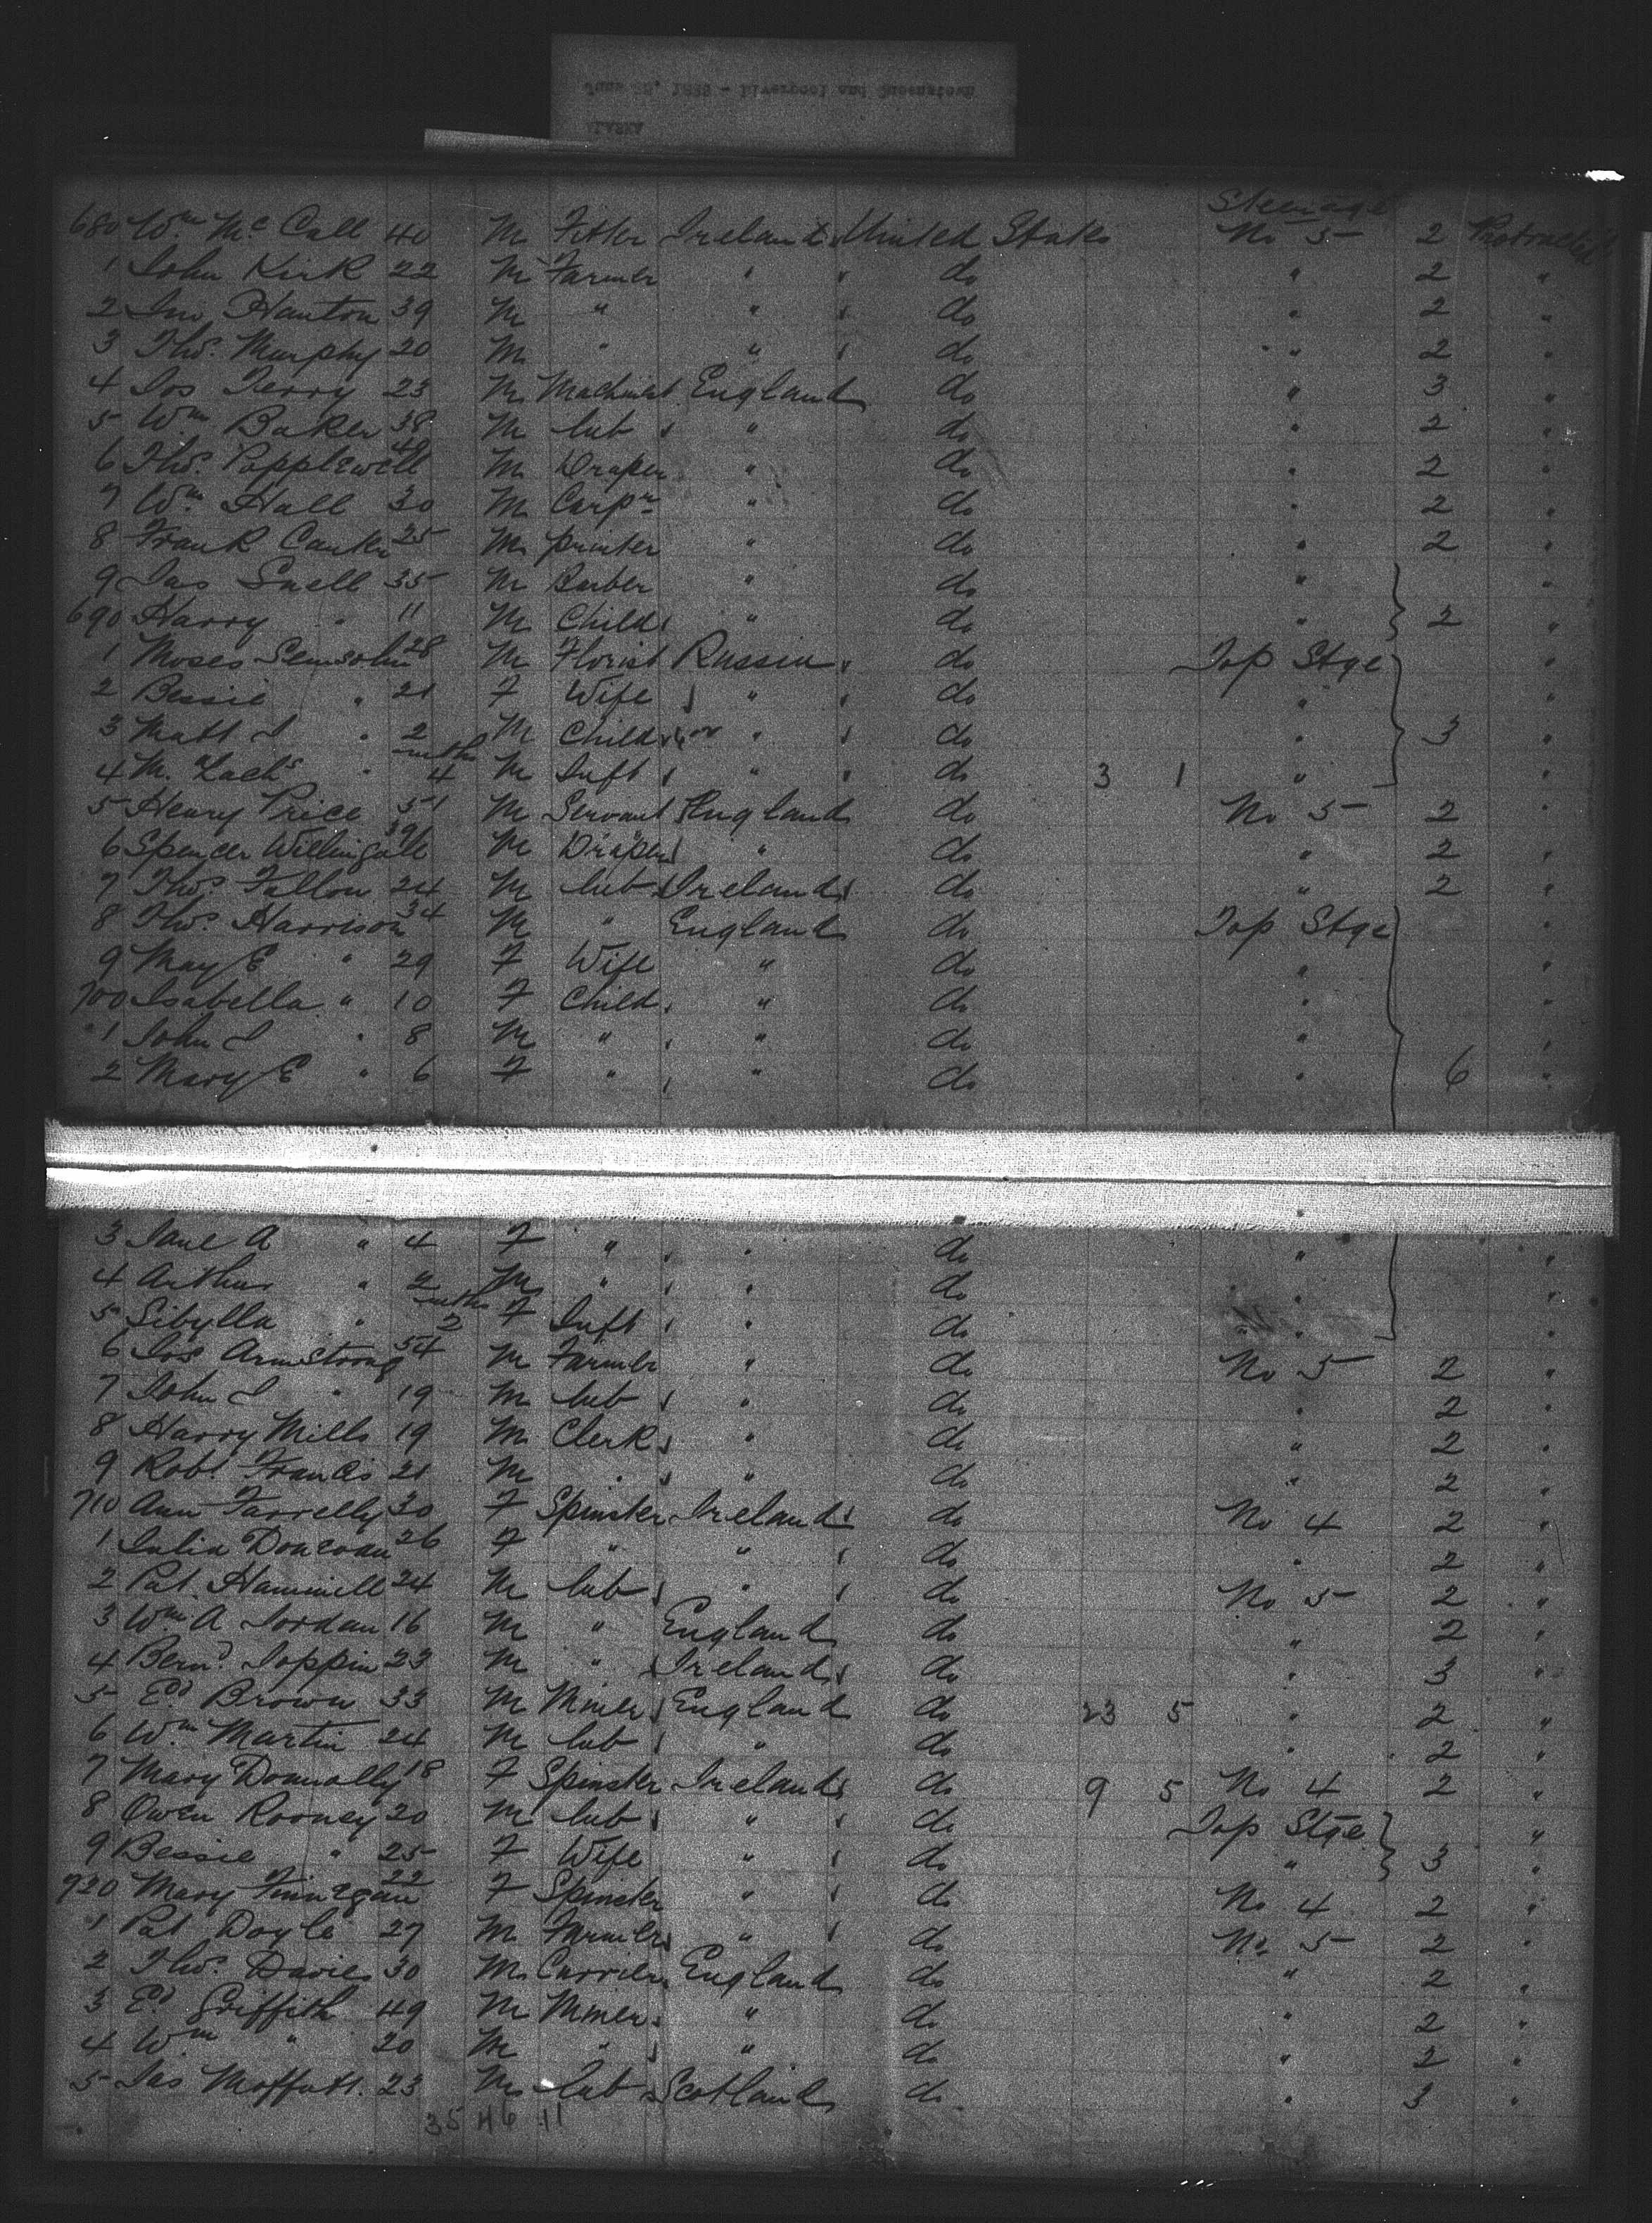 ALASKA
June 25, 1888 - Liverpool and Queenstown
Steerage
680 Wm Mc Call 40 M Fitter Ireland United States No 5 2 Protracted
1 John Kirk 22 M Farmer " do " 2 "
2 Jno Hanton 39 M " " do " 2 "
3 Thos. Murphy 20 M " " do " 2 "
4 Jos Terry 23 M Machinist England do " 3 "
5 Wm Baker 38 M Lab " do " 2 "
6 Thos. Popplewell 40 M Draper " do " 2 "
7 Wm Hall 30 M Carpr " do " 2 "
8 Frank Canter 25 M printer " do " 2 "
9 Jas Snell 35 M Barber " do " "
690 Harry " 11 M Child " do " 2 "
1 Moses Semsohn 28 M Florist Russia do Top Stge "
2 Bessie " 21 F Wife " do " "
3 Matt J " 2 M Child " do " 3 "
4 M. Zach " mths 4 M Inft " do 3 1 "
5 Henry Price 51 M Servant England do No 5 2 "
6 Spencer Willingall 39 M Draper " do " 2 "
7 Thos. Fallon 24 M Lab Ireland do " 2 "
8 Thos. Harrison 34 M " England do Top Stge "
9 May E " 29 F Wife " do " "
700 Isabella " 10 F Child " do " "
1 John J " 8 M " " do " "
2 Mary E " 6 F " " do " 6 "
3 Jane A " 4 F " " do " "
4 Arthur " 2 M " " do " "
5 Sibylla " mths 2 F Inft " do " "
6 Jos Armstrong 54 M Farmer " do No 5 2 "
7 John J " 19 M Lab " do " 2 "
8 Harry Mills 19 M Clerk " do " 2 "
9 Robt Francis 21 M " " do " 2 "
710 Ann Farrelly 30 F Spinster Ireland do No 4 2 "
1 Julia Donovan 26 F " " do " 2 "
2 Pat. Hammill 24 M Lab " do No 5 2 "
3 Wm A Jordan 16 M " England do " 2 "
4 Bernd. Joppin 23 M " Ireland do " 3 "
5 Ed Brown 33 M Miner England do 23 5 " 2 "
6 Wm Martin 24 M Lab " do " 2 "
7 Mary Donnolly 18 F Spinster Ireland do 9 5 No 4 2 "
8 Owen Rooney 20 M Lab " do Top Stge "
9 Bessie " 25 F Wife " do " 3 "
720 Mary Finnegan 22 F Spinster " do No 4 2 "
1 Pat Doyle 27 M Farmer " do No 5 2 "
2 Thos. Davies 30 M Carrier England do " 2 "
3 Ed Griffith 49 M Miner " do " 2 "
4 Wm " 20 M " " do " 2 "
5 Jas Moffatt. 23 M Lab Scotland do " 3 "
35 46 11